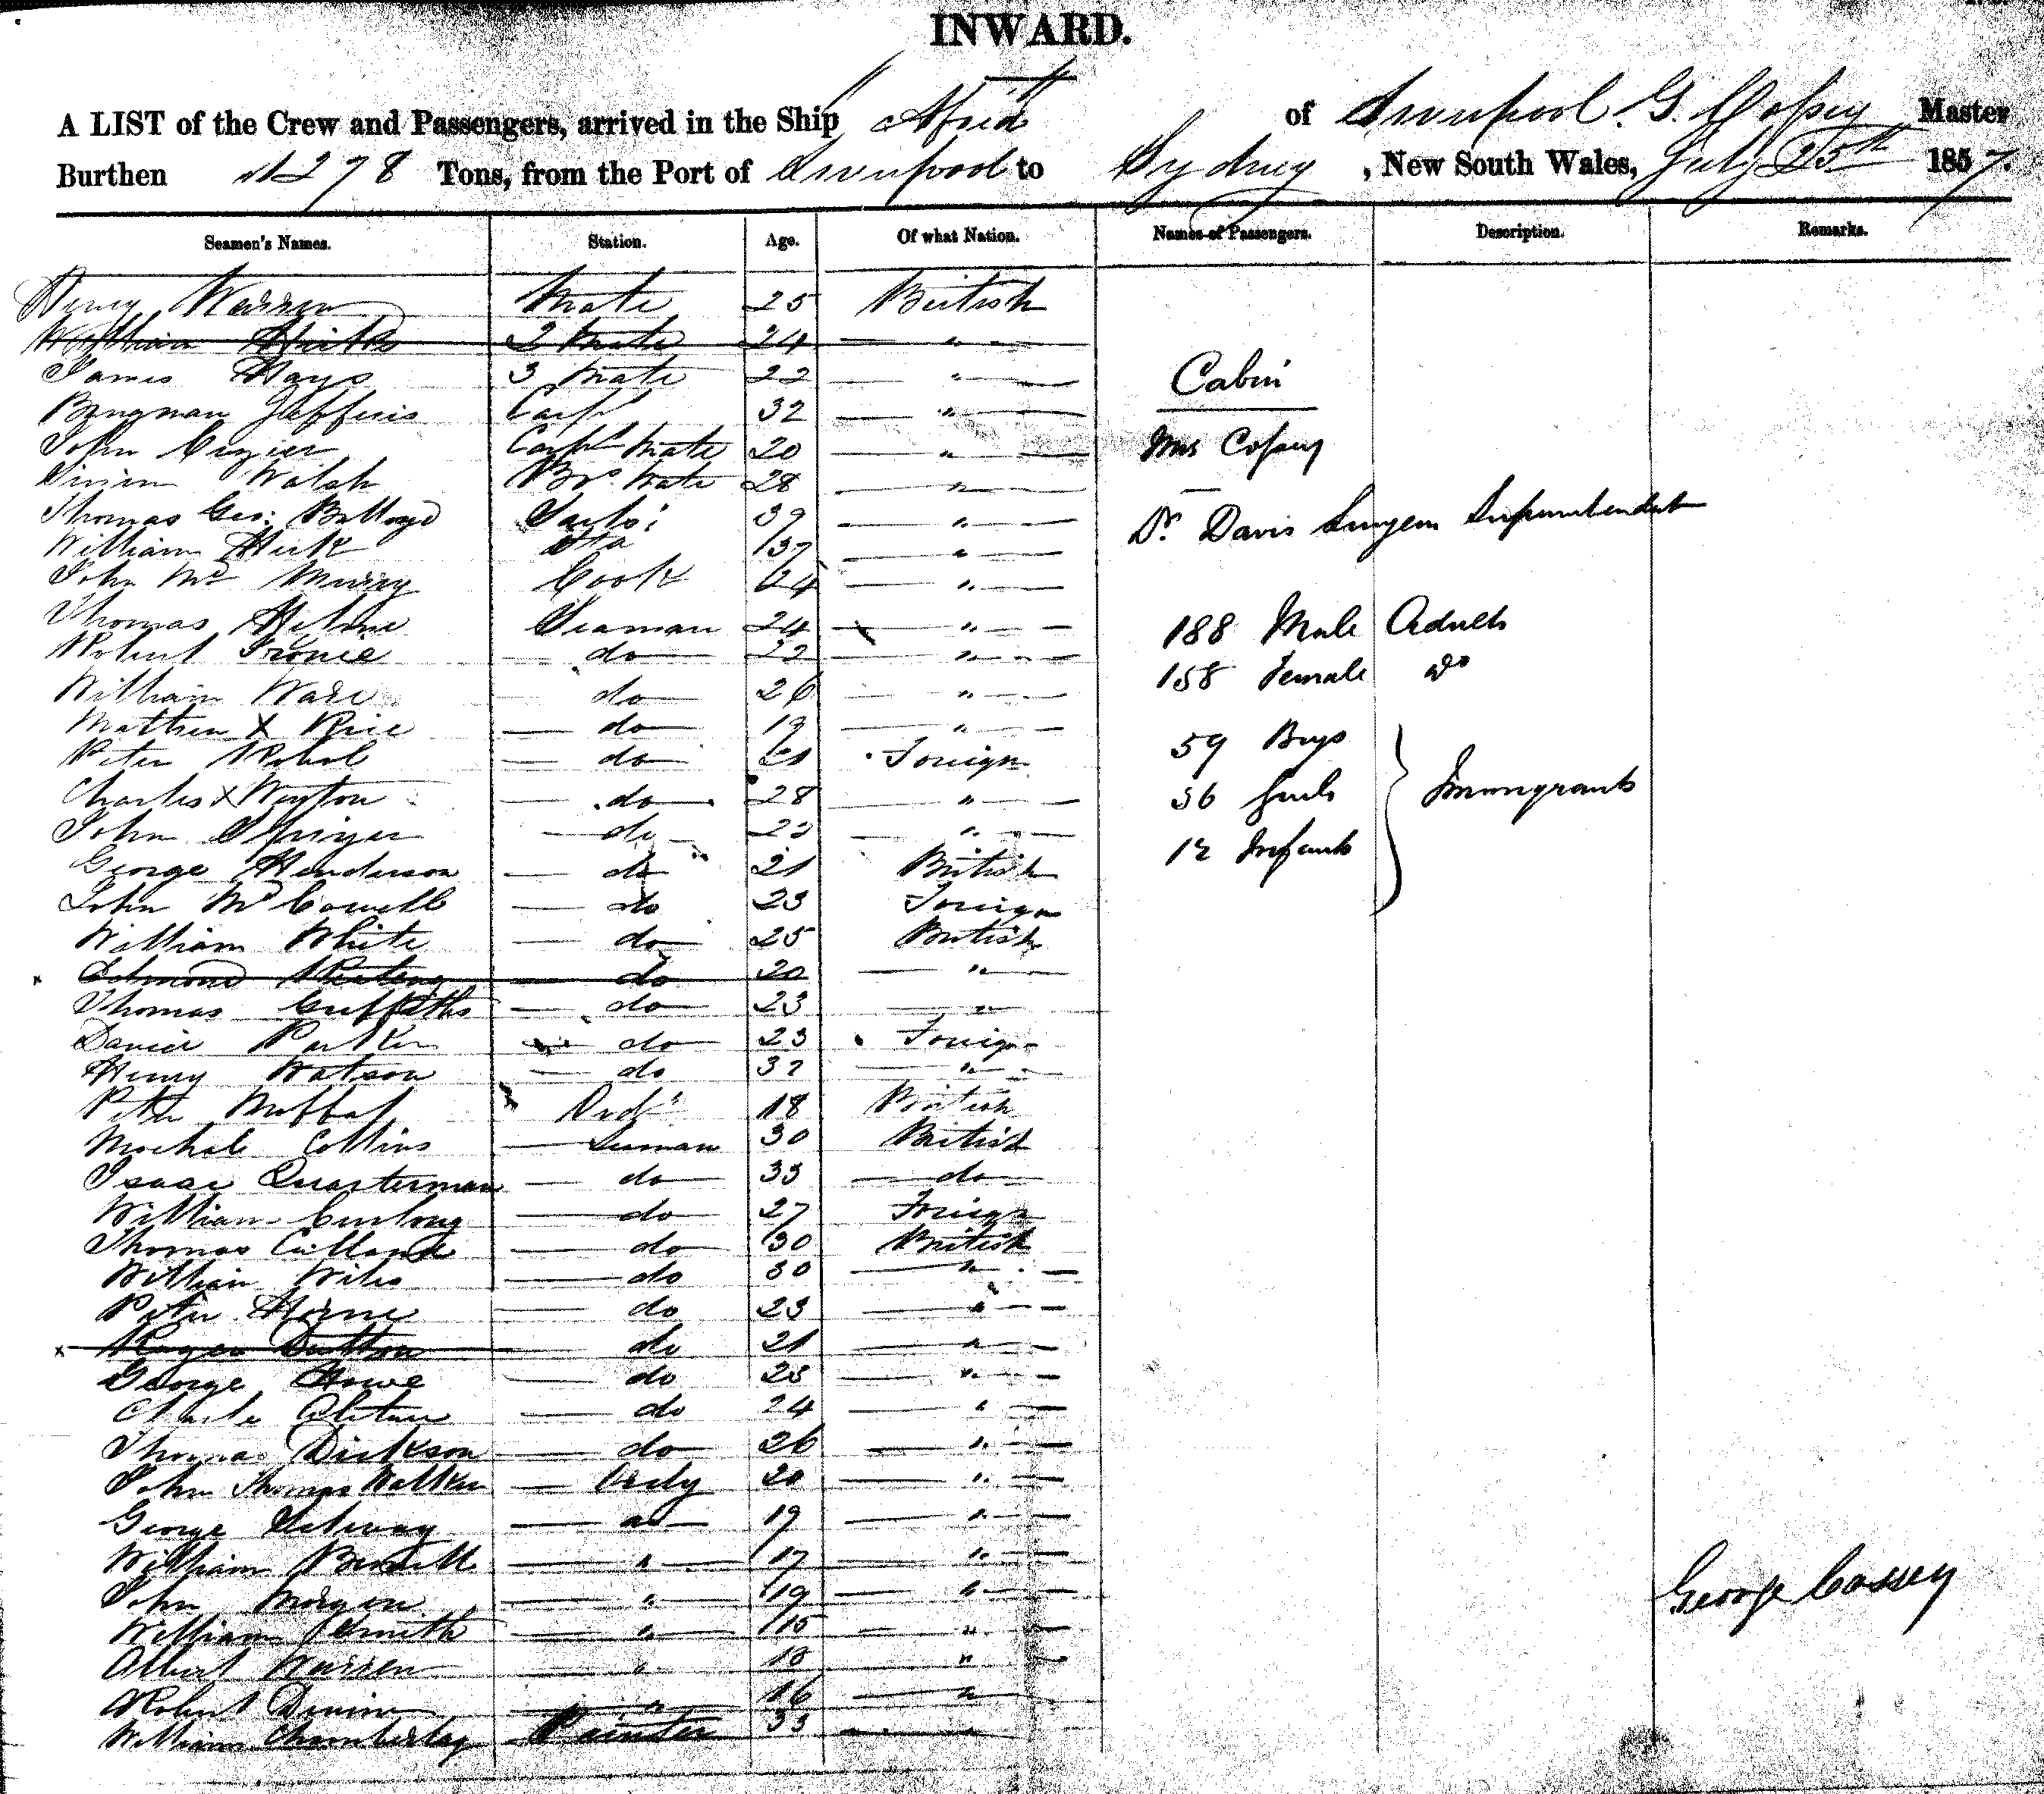 INWARD.
A LIST of the Crew and Passengers, arrived in the Ship " " of Liverpool. G. Cossey Master
Burthen 1278 Tons, from the Port of Liverpool to Sydney, New South Wales, July 25th 1857.
Seamen's Names. Station. Age. Of what Nation. Names of Passengers. Description. Remarks.
Henry Warren Mate 25 British
William 2 Mate 24 — " —
James Hays 3 Mate 22 — " —
Cabin
Bengman Jefferis Carpr 32 — " —
John Crozier Carpr Mate 20 — " —
Mrs Cossey
Walsh Bos Mate 28 — " —
Thomas Geo: 39 — " —
Dr. Davis Surgeon Superintendent
William Hick 37 — " —
John Mc Murray Cook 24 — " —
Thomas Seaman 24 — " —
188 Male Adults
Robert — do — 22 — " —
158 Female do
William Ware do — 26 — " —
Matthew X Rice — do — 19 — " —
59 Boys
Peter — do — 21 Foreign
Charles X — do — 28 — " —
56 Girls } Immongrants
John — do — 22 — " —
12 Infants
George Henderson — do — 21 British
John Mc Connell — do 23 Foreign
William White — do — 25 British
x Edmond — do 20 — " —
Thomas Griffiths — do — 23 — " —
Daniel Parker do — 23 Foreign
Henry Watson — do 32 — " —
Peter Moffat Ordy 18 British
Michale Collins — Seaman 30 British
Isaac Quarterman — do — 33 — do —
William — do — 27 Foreign
Thomas — do — 30 British
William Wiles — do 30 — " —
Peter Horne — do 23 — " —
x Roger Dutton — do 21 — " —
George Howe — do 23 — " —
Charles — do 24 — " —
Thomas Dickson — do — 26 — " —
John Thomas Walker — Ordy 20 — " —
George — do — 19 — " —
William — " — 17 — " —
John Morgan — " — 19 — " —
George Cossey
William Smith — " — 15 — " —
Albert Warren — " 18 "
Robert — " — 16 — " —
William Chamberlay Painter 33 — " —